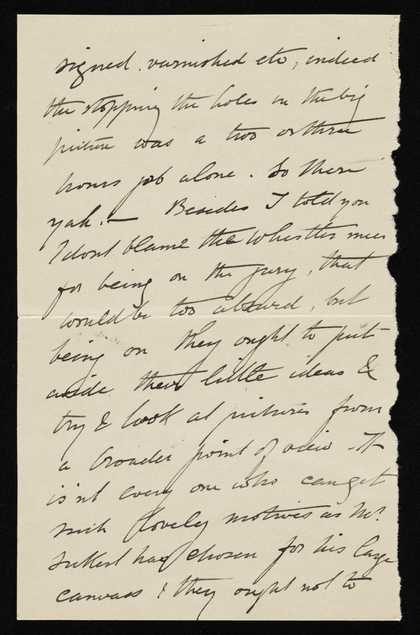 signed. varnished etc, indeed
the stopping the holes in the big
picture was a two or three
hours job alone. So there
yah. — Besides I told you
I dont blame the Whistler men
for being on the jury, that
would be too absurd, but
being on they ought to put
aside their little ideas &
try & look at pictures from
a broader point of view - It
is'nt every one who can get
such lovely motives as Mr.
Sickert has chosen for his large
canvass & they ought not to